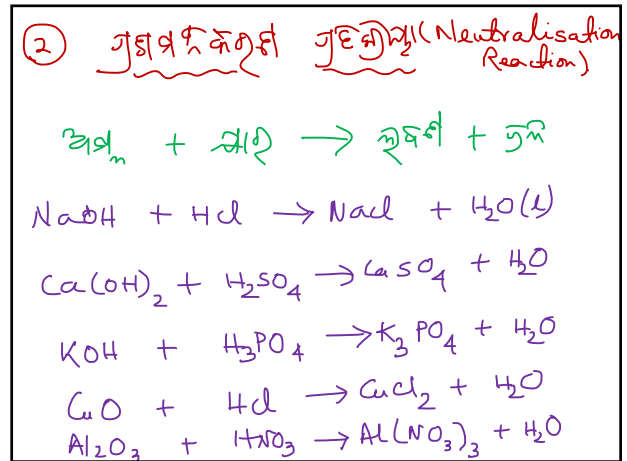 ② ପ୍ରଶମନକରଣ ପ୍ରକ୍ରିୟା (Neutralisation
Reaction)
ଅମ୍ଳ + କ୍ଷାର → ଲବଣ + ଜଳ
NaOH + HCl → NaCl + H₂O(l)
Ca(OH)₂ + H₂SO₄ → CaSO₄ + H₂O
KOH + H₃PO₄ → K₃PO₄ + H₂O
CuO + HCl → CuCl₂ + H₂O
Al₂O₃ + HNO₃ → Al(NO₃)₃ + H₂O